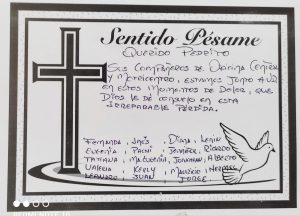 Sentido Pésame
Querido Pedrito
Sus Compañeros de
y Mericentro, estamos Junto a Ud
en estos Momentos de Dolor, que
Dios le dé consuelo en esta
irreparable Pérdida.
Fernanda, Inés, Diana, Lenin
Eugenia, Pachi, Jennifer, Ricardo
Tatiana, Ma. Eugenia, Jonathan, Alberto
Valeria, Kerly, Mauricio, Hernán
Leandro, Juan, Jorge